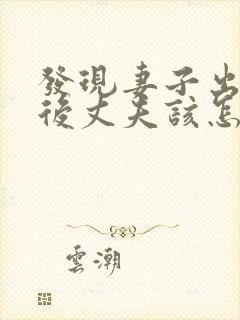 發現妻子出
後丈夫該怎
雲潮